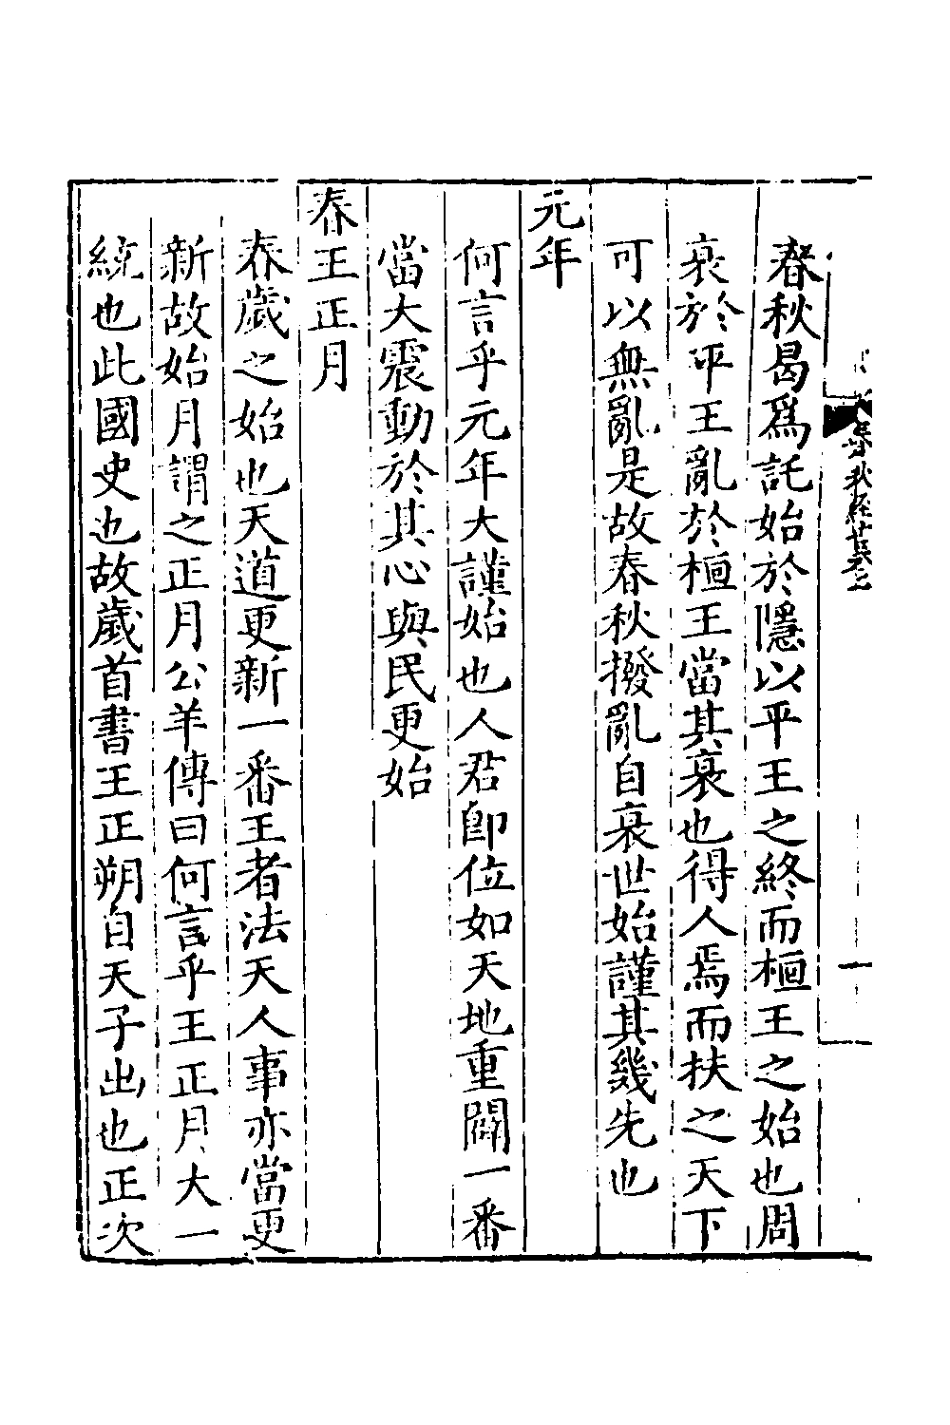 春秋曷爲託始於隱以平王之終而桓王之始也周
衰於平王亂於桓王當其衰也得人焉而扶之天下
可以無亂是故春秋撥亂自衰世始謹其幾先也
元年
何言乎元年大謹始也人君卽位如天地重闢一番
當大震動於其心與民更始
春王正月
春歲之始也天道更新一番王者法天人事亦當更
新故始月謂之正月公羊傳曰何言乎王正月大一
統也此國史也故歲首書王正朔自天子出也正次